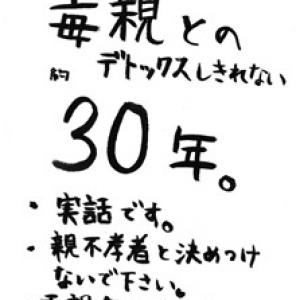 毒親との
約 デトックスしきれない
30年。
・実話です。
・親不孝者と決めつけ
ないで下さい。